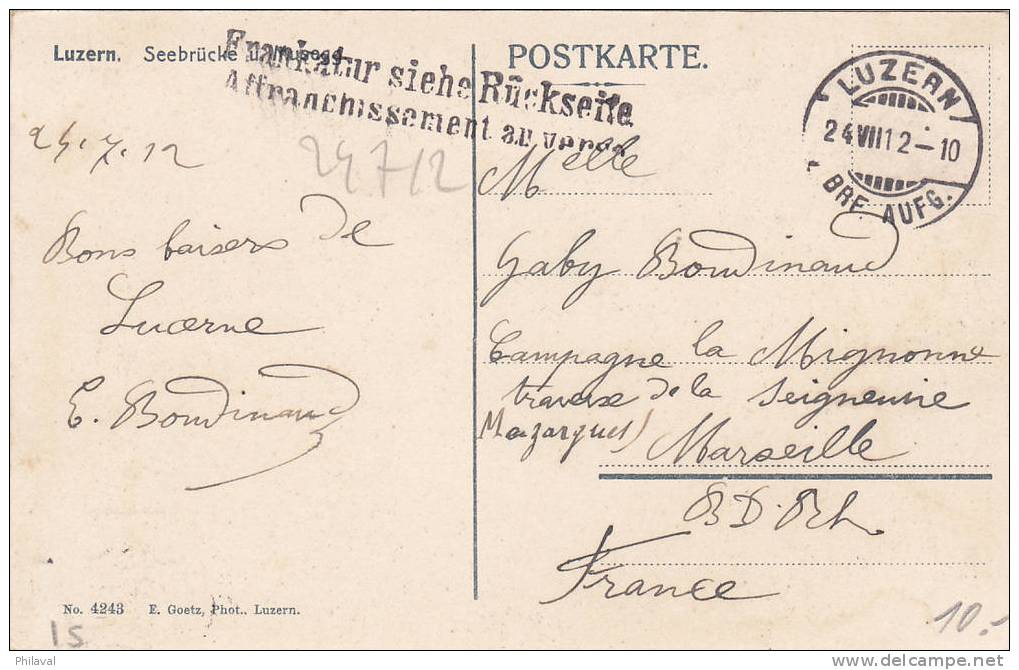 Luzern. Seebrücke u. Musegg.
Frankatur siehe Rückseite
Affranchissement au verso
POSTKARTE.
LUZERN
24 VIII 12 – 10
BRF. AUFG.
24.7.12
24 7 12
Bons baisers de
Lucerne
E. Boudinaud
Melle
Gaby Boudinaud
Campagne la Mignonne
traverse de la Seigneurie
Mazargues)
Marseille
B.D.Rh.
France
No. 4243 E. Goetz, Phot., Luzern.
15
10.-
Philaval
delcampe.net